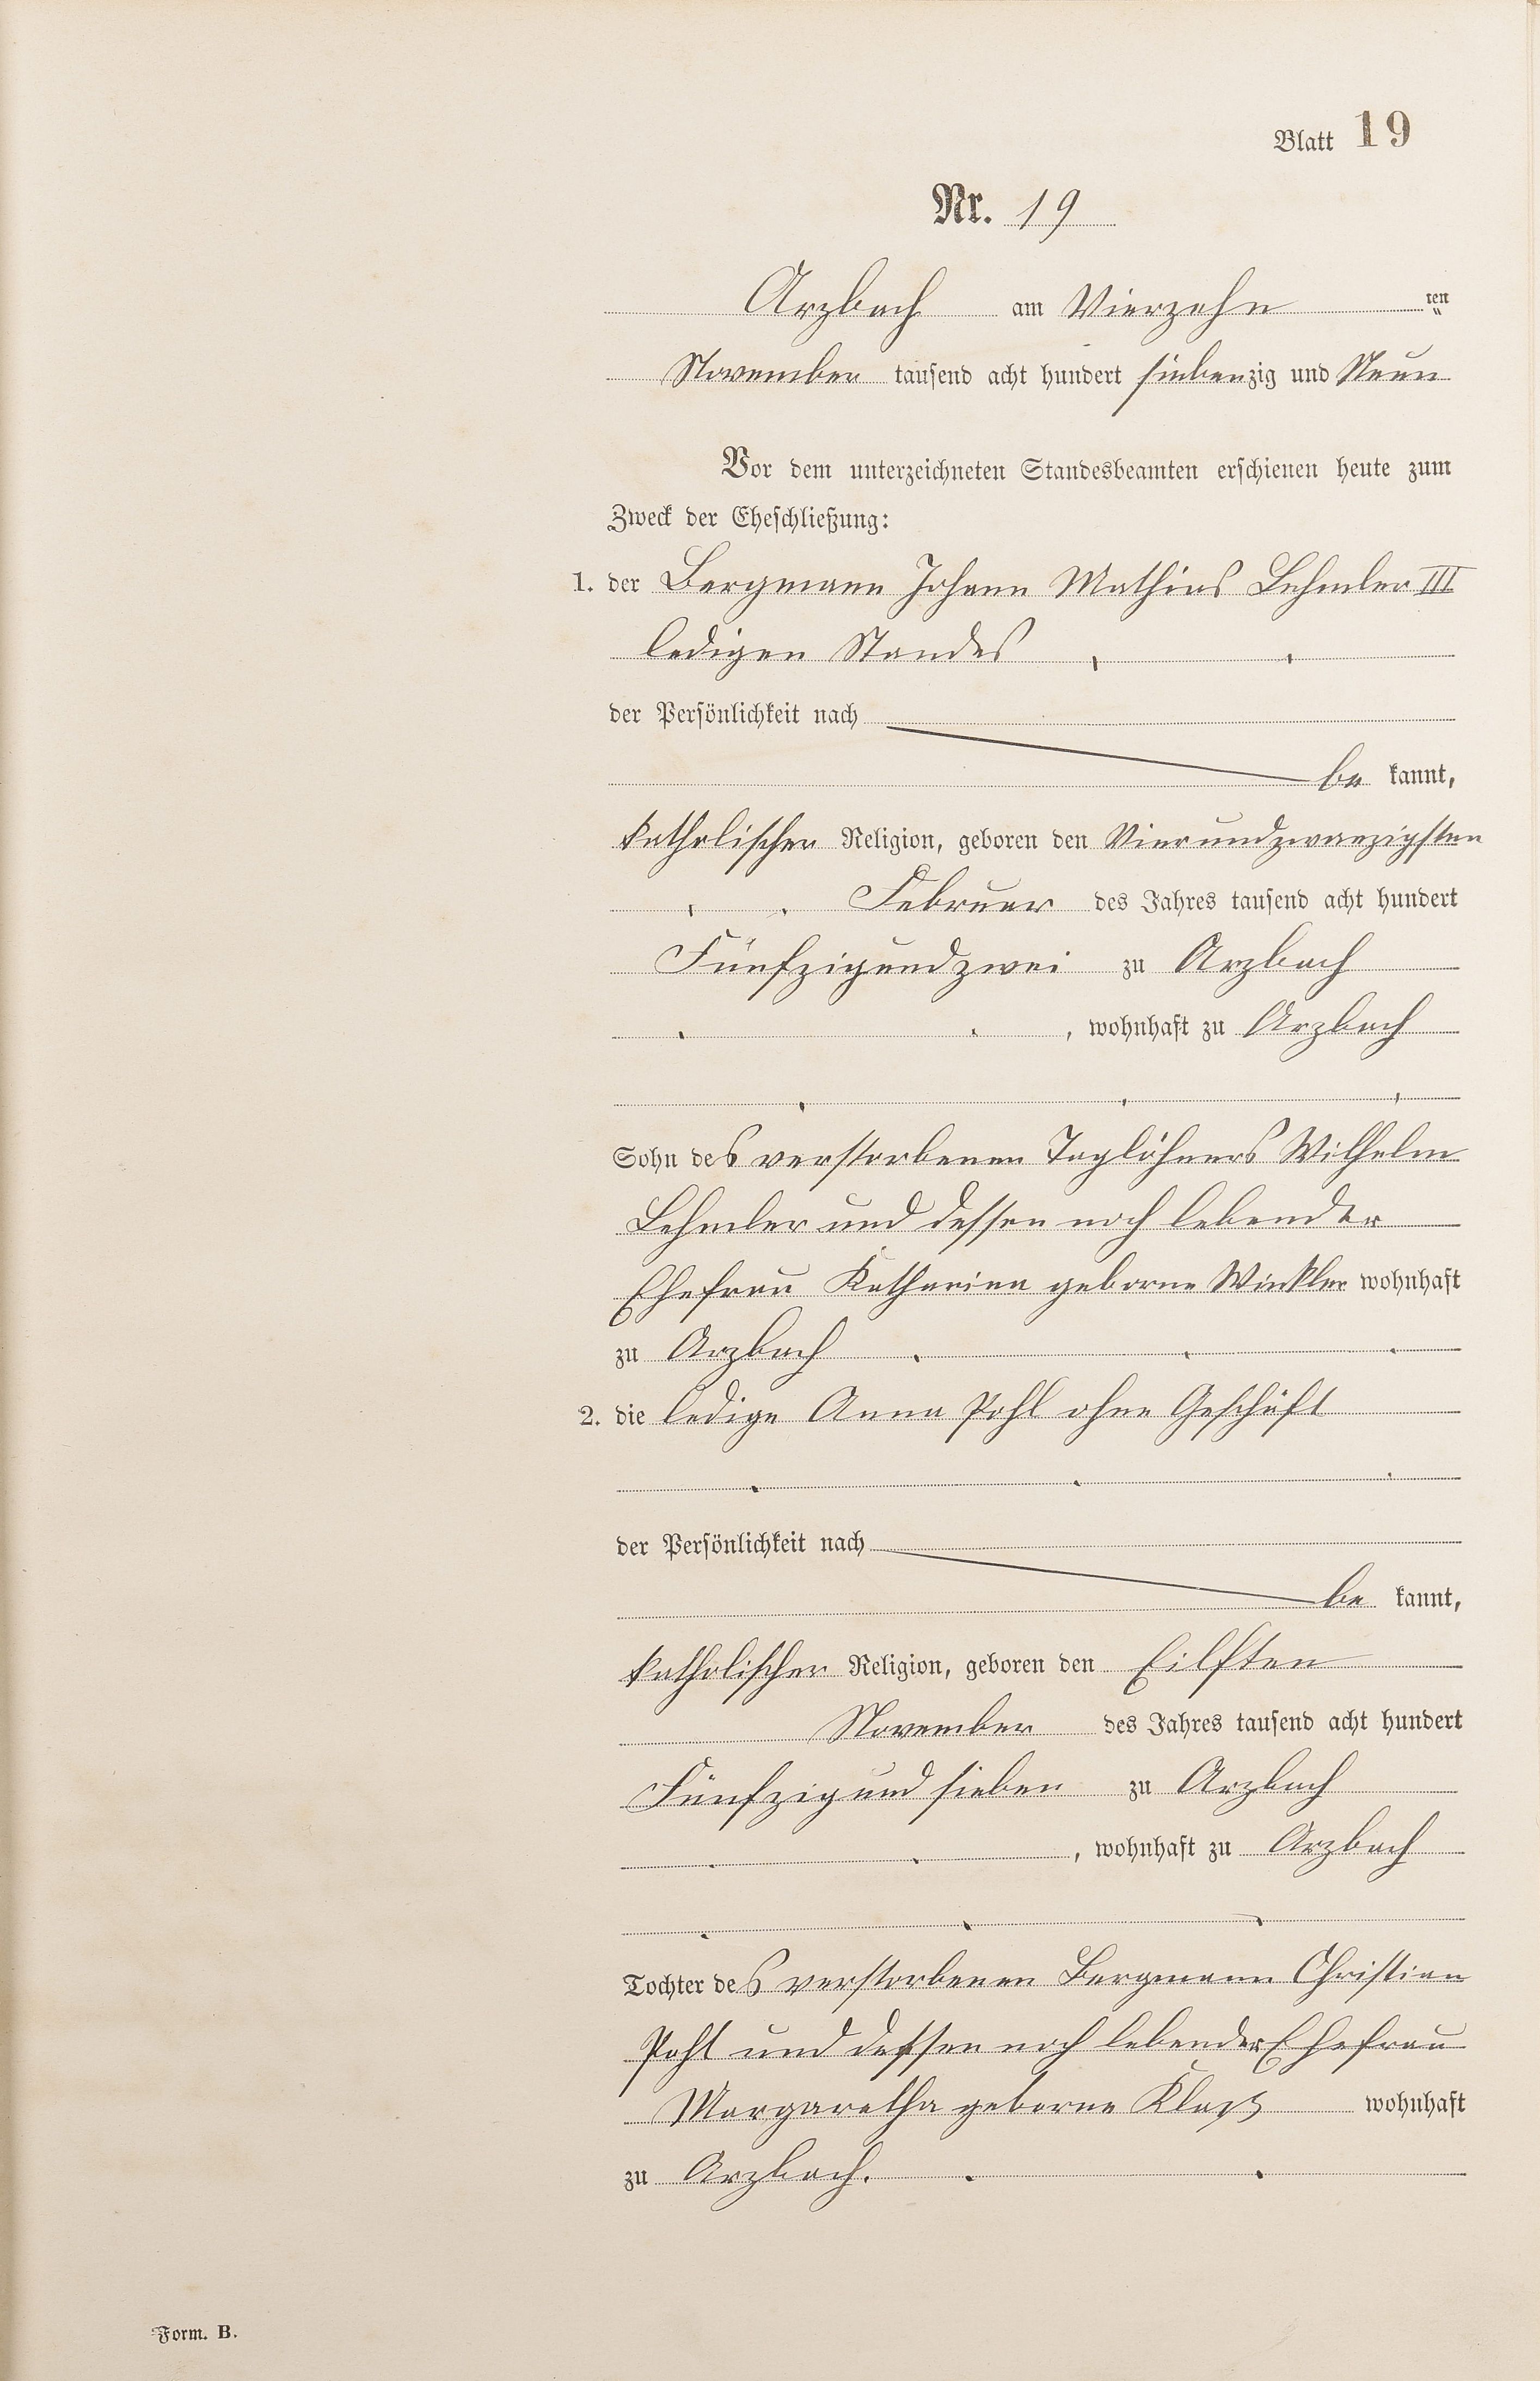 Blatt 19
Nr. 19
Arzbach am Vierzehn ten
November tausend acht hundert siebenzig und Neun
Vor dem unterzeichneten Standesbeamten erschienen heute zum
Zweck der Eheschließung:
1. der Bergmann Johann Mathias Lehmler III
ledigen Standes
der Persönlichkeit nach
be kannt,
katholischer Religion, geboren den Vierundzwanzigsten
Februar des Jahres tausend acht hundert
Fünfzigundzwei zu Arzbach
, wohnhaft zu Arzbach
Sohn des verstorbenen Taglöhners Wilhelm
Lehmler und dessen noch lebender
Ehefrau Katharina geborne Winkler wohnhaft
zu Arzbach
2. die ledige Anna Pohl ohne Geschäft
der Persönlichkeit nach
be kannt,
katholischer Religion, geboren den Eilften
November des Jahres tausend acht hundert
Fünfzig und sieben zu Arzbach
, wohnhaft zu Arzbach
Tochter des verstorbenen Bergmann Christian
Pohl und dessen noch lebender Ehefrau
Margaretha geborne wohnhaft
zu Arzbach.
Form. B.